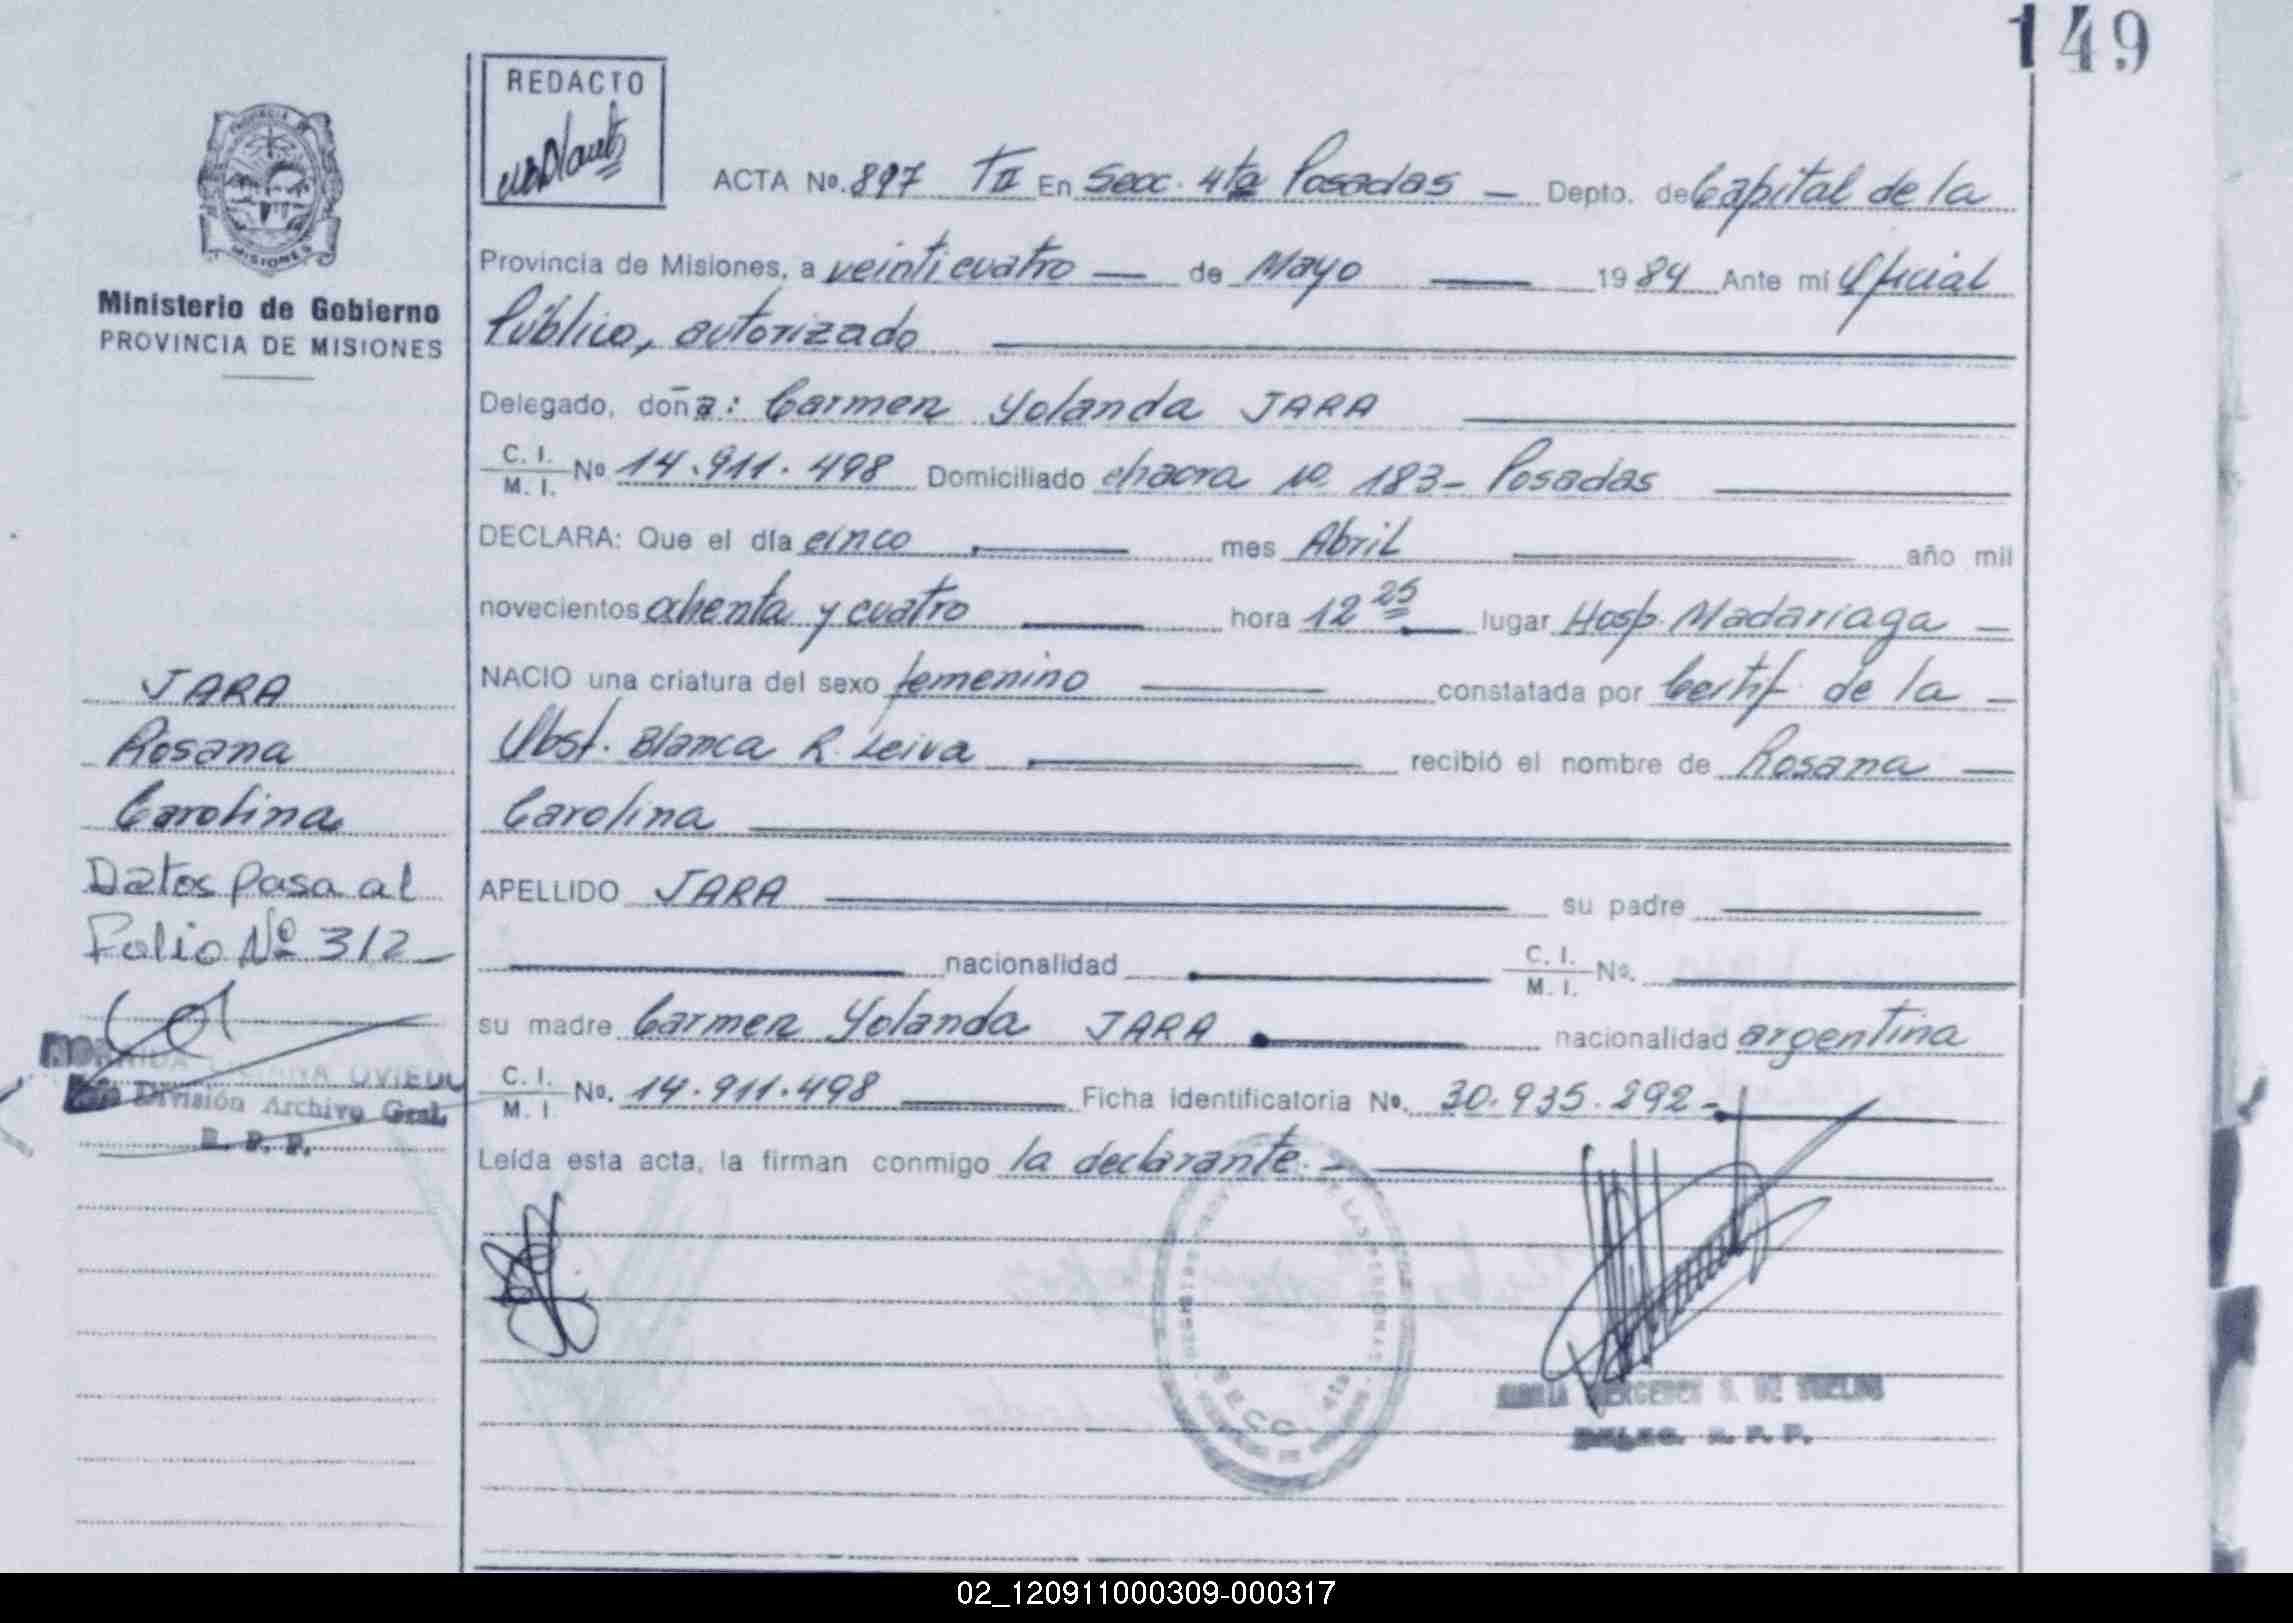 149
REDACTO
PROVINCIA DE
MISIONES
Ministerio de Gobierno
PROVINCIA DE MISIONES
ACTA No. 897 TII En Secc. 4ta Posadas — Depto. de Capital de la
Provincia de Misiones, a veinticuatro — de Mayo — 1984 Ante mi Oficial
Público, autorizado
Delegado, doña: Carmen Yolanda JARA
C. I.
M. I. No 14.911.498 Domiciliado chacra no. 183- Posadas
DECLARA: Que el día cinco — mes Abril — año mil
novecientos ochenta y cuatro — hora 12 25 — lugar Hosp. Madariaga —
NACIO una criatura del sexo femenino — constatada por Certif. de la —
Obst. Blanca R. Leiva — recibió el nombre de Rosana —
Carolina
APELLIDO JARA — su padre —
— nacionalidad — C. I.
M. I. No.
su madre Carmen Yolanda JARA — nacionalidad argentina
C. I.
M. I. No. 14.911.498 — Ficha identificatoria No. 30.935.292-
Leída esta acta, la firman conmigo la declarante. -
JARA
Rosana
Carolina
Datos pasa al
Folio Nº 312-
OVIEDO
División Archivo Gral.
R. P. P.
LAS PERSONAS
SECC 4ta
MERCEDES
DELEG. R. P. P.
02_120911000309-000317